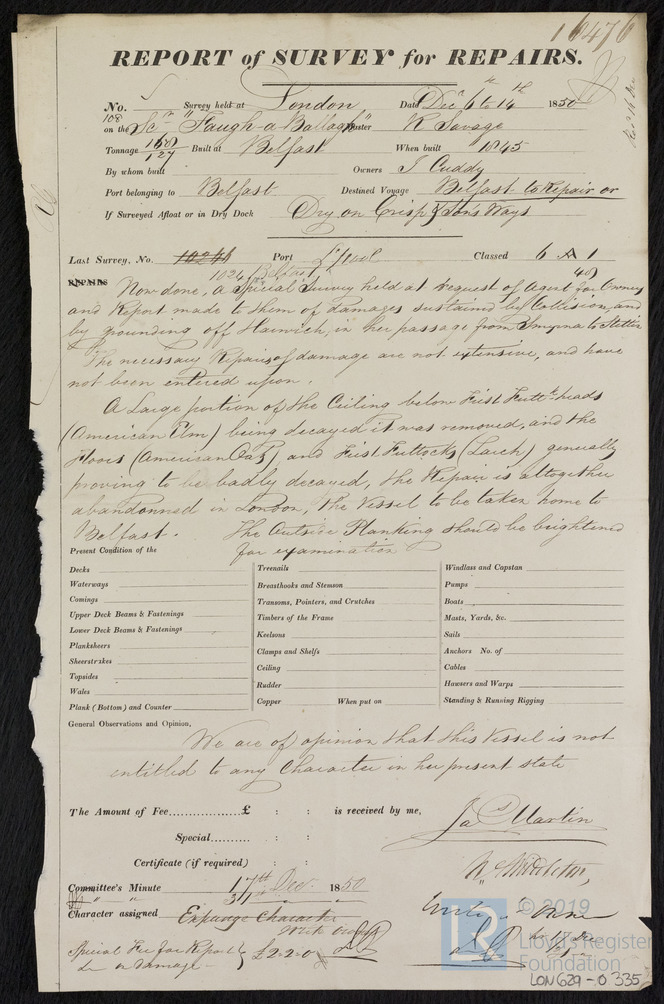 16476
REPORT of SURVEY for REPAIRS.
No. Survey held at London Date Decr 6 to 14th 1850
108 on the Scr "Faugh-a-Ballagh" Master R Savage
Tonnage 127 Built at Belfast When built 1845
By whom built Owners J Cuddy
Port belonging to Belfast Destined Voyage Belfast to Repair or
If Surveyed Afloat or in Dry Dock Dry on Crisp & Son's Ways
Last Survey, No. Port L'pool Classed 6 A 1
Belfast
REPAIRS Now done, a Special Survey held at request of Agent for Owners
and Report made to them of damages sustained by Collision, and
by grounding off Harwich, in her passage from Smyrna to Stettin
The necessary Repairs of damage are not extensive, and have
not been entered upon.
A Large portion of the Ceiling below First Futtk heads
(American Elm) being decayed it was removed, and the
Floors (American Oak) and First Futtocks (Larch) generally
proving to be badly decayed, the Repair is altogether
abandonned in London, the Vessel to be taken home to
Belfast. The Outside Planking should be brightened
for examination
Present Condition of the
Decks
Waterways
Comings
Upper Deck Beams & Fastenings
Lower Deck Beams & Fastenings
Planksheers
Sheerstrakes
Topsides
Wales
Plank (Bottom) and Counter
Treenails
Breasthooks and Stemson
Transoms, Pointers, and Crutches
Timbers of the Frame
Keelsons
Clamps and Shelfs
Ceiling
Rudder
Copper When put on
Windlass and Capstan
Pumps
Boats
Masts, Yards, &c.
Sails
Anchors No. of
Cables
Hawsers and Warps
Standing & Running Rigging
General Observations and Opinion,
We are of opinion that this Vessel is not
entitled to any Character in her present state
The Amount of Fee £ : : is received by me,
Special : : Jas Martin
Certificate (if required) : :
N. Middleton,
Committee's Minute 17th Dec. 1850
Character assigned Expunge Character
Special Fee for Report } £2.2.0
on Damage
© 2019
LR
Lloyd's Register
Foundation
LON629-0335